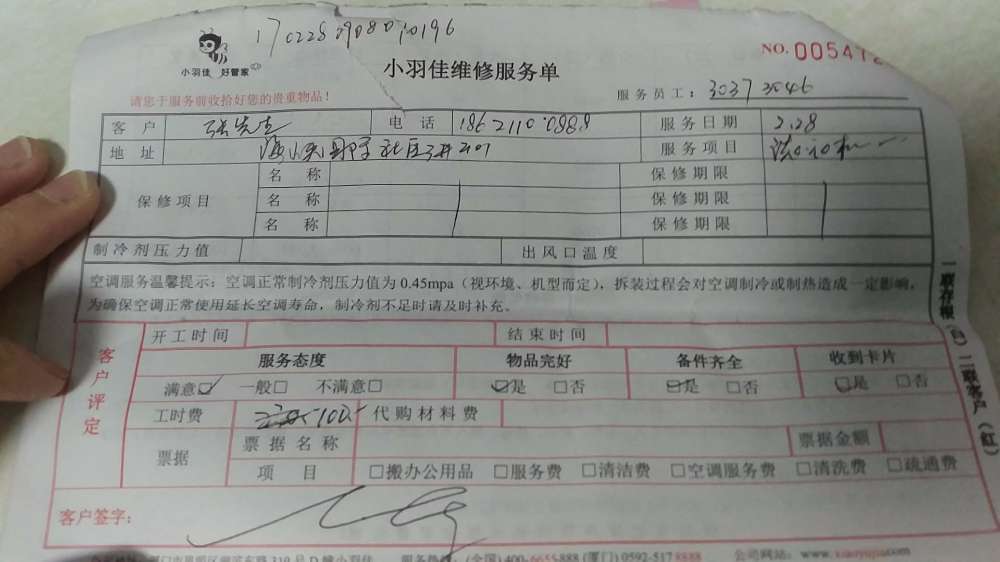 1702280908010196
小羽佳 好管家
NO. 00541
小羽佳维修服务单
请您于服务前收拾好您的贵重物品！
服务员工：3037 3546
客户 张先生 电话 186 2110 0888 服务日期 2.28
地址 2401 服务项目
保修项目 名称 保修期限
名称 保修期限
名称 保修期限
制冷剂压力值 出风口温度
空调服务温馨提示：空调正常制冷剂压力值为 0.45mpa（视环境、机型而定），拆装过程会对空调制冷或制热造成一定影响，
为确保空调正常使用延长空调寿命，制冷剂不足时请及时补充。
一联存根（白）二联客户（红）
开工时间 结束时间
客户评定
服务态度 物品完好 备件齐全 收到卡片
满意☑ 一般□ 不满意□ ☑是 □否 ☑是 □否 ☑是 □否
工时费 100 代购材料费
票据 票据名称 票据金额
项目 □搬办公用品 □服务费 □清洁费 □空调服务费 □清洗费 □疏通费
客户签字：
310号D幢小羽佳 服务热线：(全国) 400-6655888 (厦门) 0592-5178888 公司网站：www.xiaoyujia.com